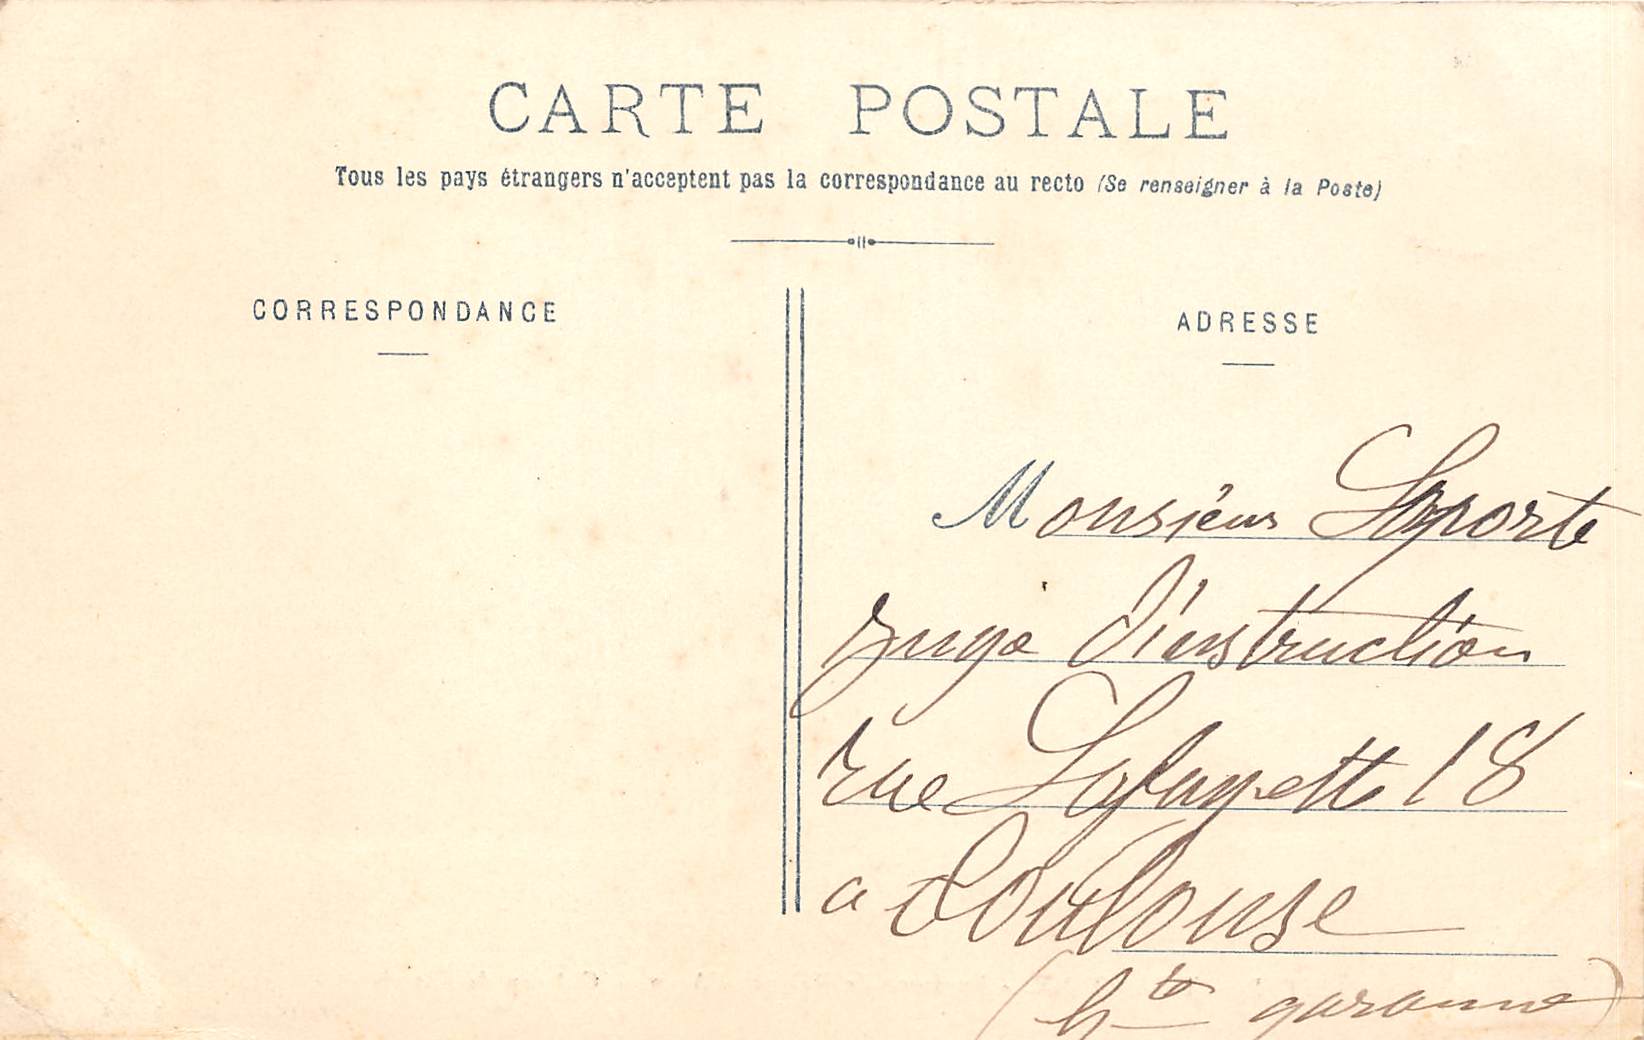 CARTE POSTALE
Tous les pays étrangers n'acceptent pas la correspondance au recto (Se renseigner à la Poste)
CORRESPONDANCE
ADRESSE
Monsieur Laporte
Juge d'instruction
rue Lafayette 18
a Toulouse
(hte garonne)